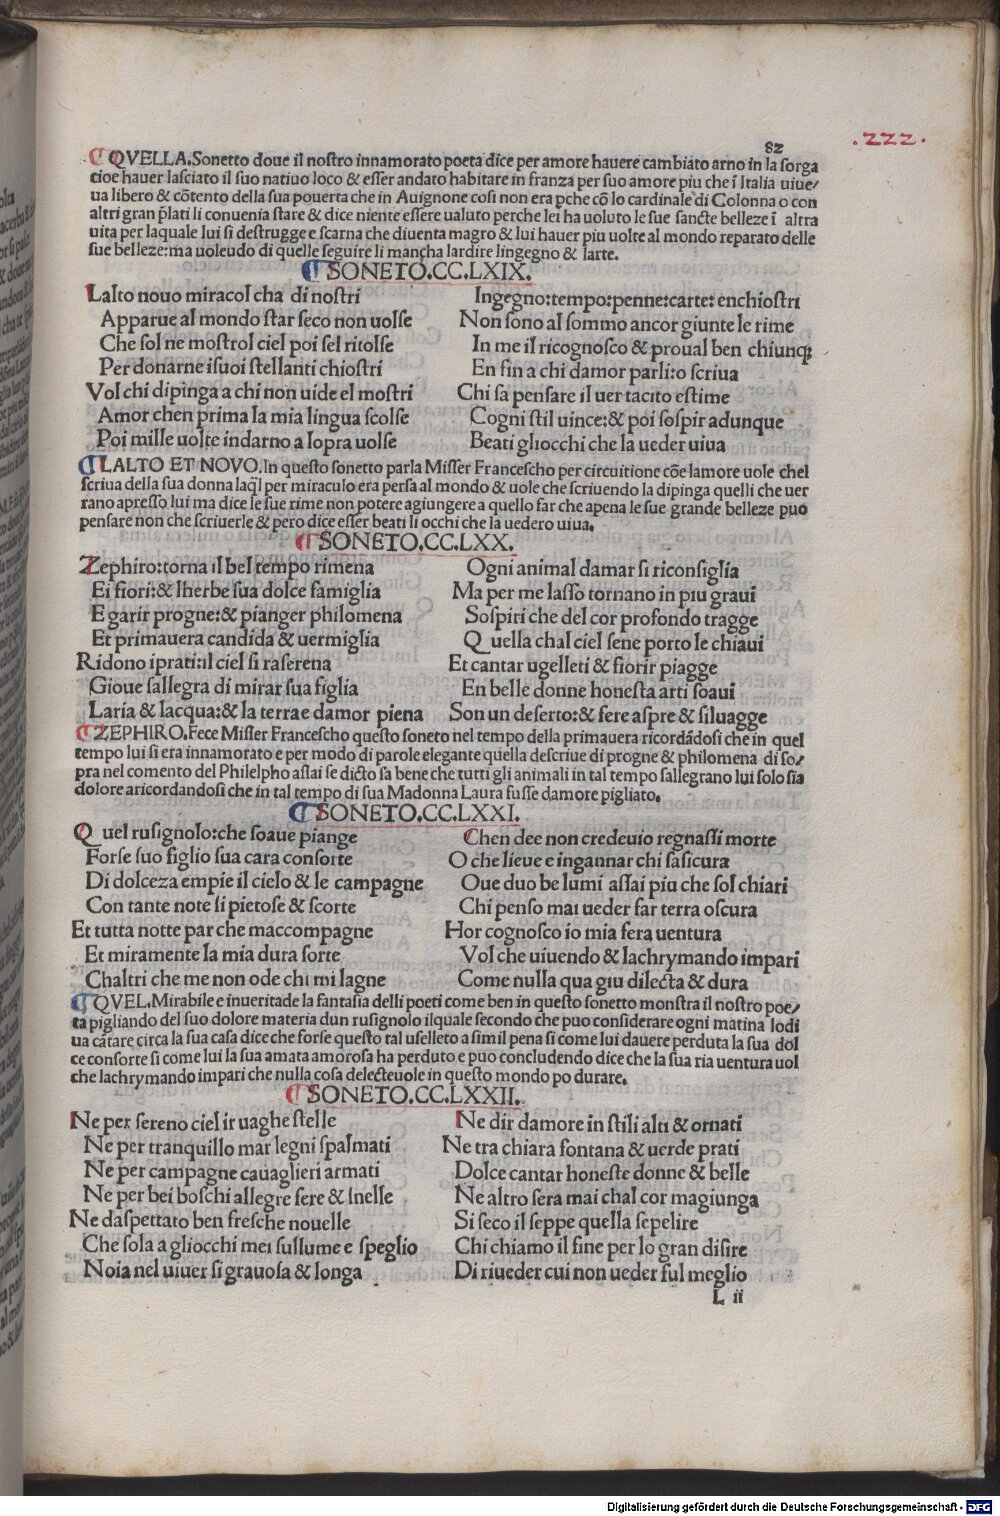 82
.222.
QVELLA.Sonetto doue il nostro innamorato poeta dice per amore hauere cambiato arno in la sorga
cioe hauer lasciato il suo natiuo loco & esser andato habitare in franza per suo amore piu che ī Italia uiue/
ua libero & cōtento della sua pouerta che in Auignone cosi non era pche cō lo cardinale di Colonna o con
altri gran plati li conuenia stare & dice niente essere ualuto perche lei ha uoluto le sue sancte belleze ī altra
uita per laquale lui si destrugge e scarna che diuenta magro & lui hauer piu uolte al mondo reparato delle
sue belleze:ma uoleudo di quelle seguire li mancha lardire lingegno & larte.
SONETO.CC.LXIX.
Lalto nouo miracol cha di nostri
Apparue al mondo star seco non uolse
Che sol ne mostrol ciel poi sel ritolse
Per donarne isuoi stellanti chiostri
Vol chi dipinga a chi non uide el mostri
Amor chen prima la mia lingua scolse
Poi mille uolte indarno a lopra uolse
Ingegno:tempo:penne:carte: enchiostri
Non sono al sommo ancor giunte le rime
In me il ricognosco & proual ben chiunq;
En fin a chi damor parli:o scriua
Chi sa pensare il uer tacito estime
Cogni stil uince:& poi sospir adunque
Beati gliocchi che la ueder uiua
LALTO ET NOVO.In questo sonetto parla Misser Francescho per circuitione cōe lamore uole chel
scriua della sua donna laql per miraculo era persa al mondo & uole che scriuendo la dipinga quelli che uer
rano apresso lui ma dice le sue rime non potere agiungere a quello far che apena le sue grande belleze puo
pensare non che scriuerle & pero dice esser beati li occhi che la uedero uiua.
SONETO.CC.LXX.
Zephiro:torna il bel tempo rimena
Ei fiori:& lherbe sua dolce famiglia
E garir progne:& pianger philomena
Et primauera candida & uermiglia
Ridono iprati:il ciel si raserena
Gioue sallegra di mirar sua figlia
Laria & lacqua:& la terra e damor piena
Ogni animal damar si riconsiglia
Ma per me lasso tornano in piu graui
Sospiri che del cor profondo tragge
Quella chal ciel sene porto le chiaui
Et cantar ugelleti & fiorir piagge
En belle donne honesta arti soaui
Son un deserto:& fere aspre & siluagge
ZEPHIRO.Fece Misser Francescho questo soneto nel tempo della primauera ricordādosi che in quel
tempo lui si era innamorato e per modo di parole elegante quella descriue di progne & philomena di so/
pra nel comento del Philelpho assai se dicto sa bene che tutti gli animali in tal tempo sallegrano lui solo sia
dolore aricordandosi che in tal tempo di sua Madonna Laura fusse damore pigliato.
SONETO.CC.LXXI.
Quel rusignolo:che soaue piange
Forse suo figlio sua cara consorte
Di dolceza empie il cielo & le campagne
Con tante note si pietose & scorte
Et tutta notte par che maccompagne
Et miramente la mia dura sorte
Chaltri che me non ode chi mi lagne
Chen dee non credeuio regnassi morte
O che lieue e ingannar chi sasicura
Oue duo be lumi assai piu che sol chiari
Chi penso mai ueder far terra oscura
Hor cognosco io mia fera uentura
Vol che uiuendo & lachrymando impari
Come nulla qua giu dilecta & dura
QVEL.Mirabile e inueritade la fantasia delli poeti come ben in questo sonetto monstra il nostro poe/
ta pigliando del suo dolore materia dun rusignolo ilquale secondo che puo considerare ogni matina lodi
ua cātare circa la sua casa dice che forse questo tal uselleto a simil pena si come lui dauere perduta la sua dol
ce consorte si come lui la sua amata amorosa ha perduto e puo concludendo dice che la sua ria uentura uol
che lachrymando impari che nulla cosa delecteuole in questo mondo po durare.
SONETO.CC.LXXII.
Ne per sereno ciel ir uaghe stelle
Ne per tranquillo mar legni spalmati
Ne per campagne cauaglieri armati
Ne per bei boschi allegre fere & snelle
Ne daspettato ben fresche nouelle
Che sola a gliocchi mei sullume e speglio
Noia nel uiuer si grauosa & longa
Ne dir damore in stili alti & ornati
Ne tra chiara fontana & uerde prati
Dolce cantar honeste donne & belle
Ne altro sera mai chal cor magiunga
Si seco il seppe quella sepelire
Chi chiamo il fine per lo gran disire
Di riueder cui non ueder ful meglio
L ii
Digitalisierung gefördert durch die Deutsche Forschungsgemeinschaft - DFG